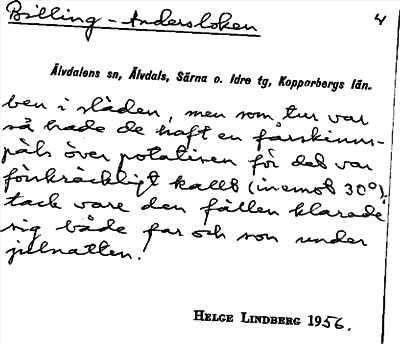 Billing - Andersloken
4
Älvdalens sn, Älvdals, Särna o. Idre tg, Kopparbergs län.
ben i släden, men som tur var
så hade de haft en fårskinns-
päls över potatisen för det var
förskräckligt kallt (inemot 30°),
tack vare den fällen klarade
sig både far och son under
julnatten!
HELGE LINDBERG 1956.